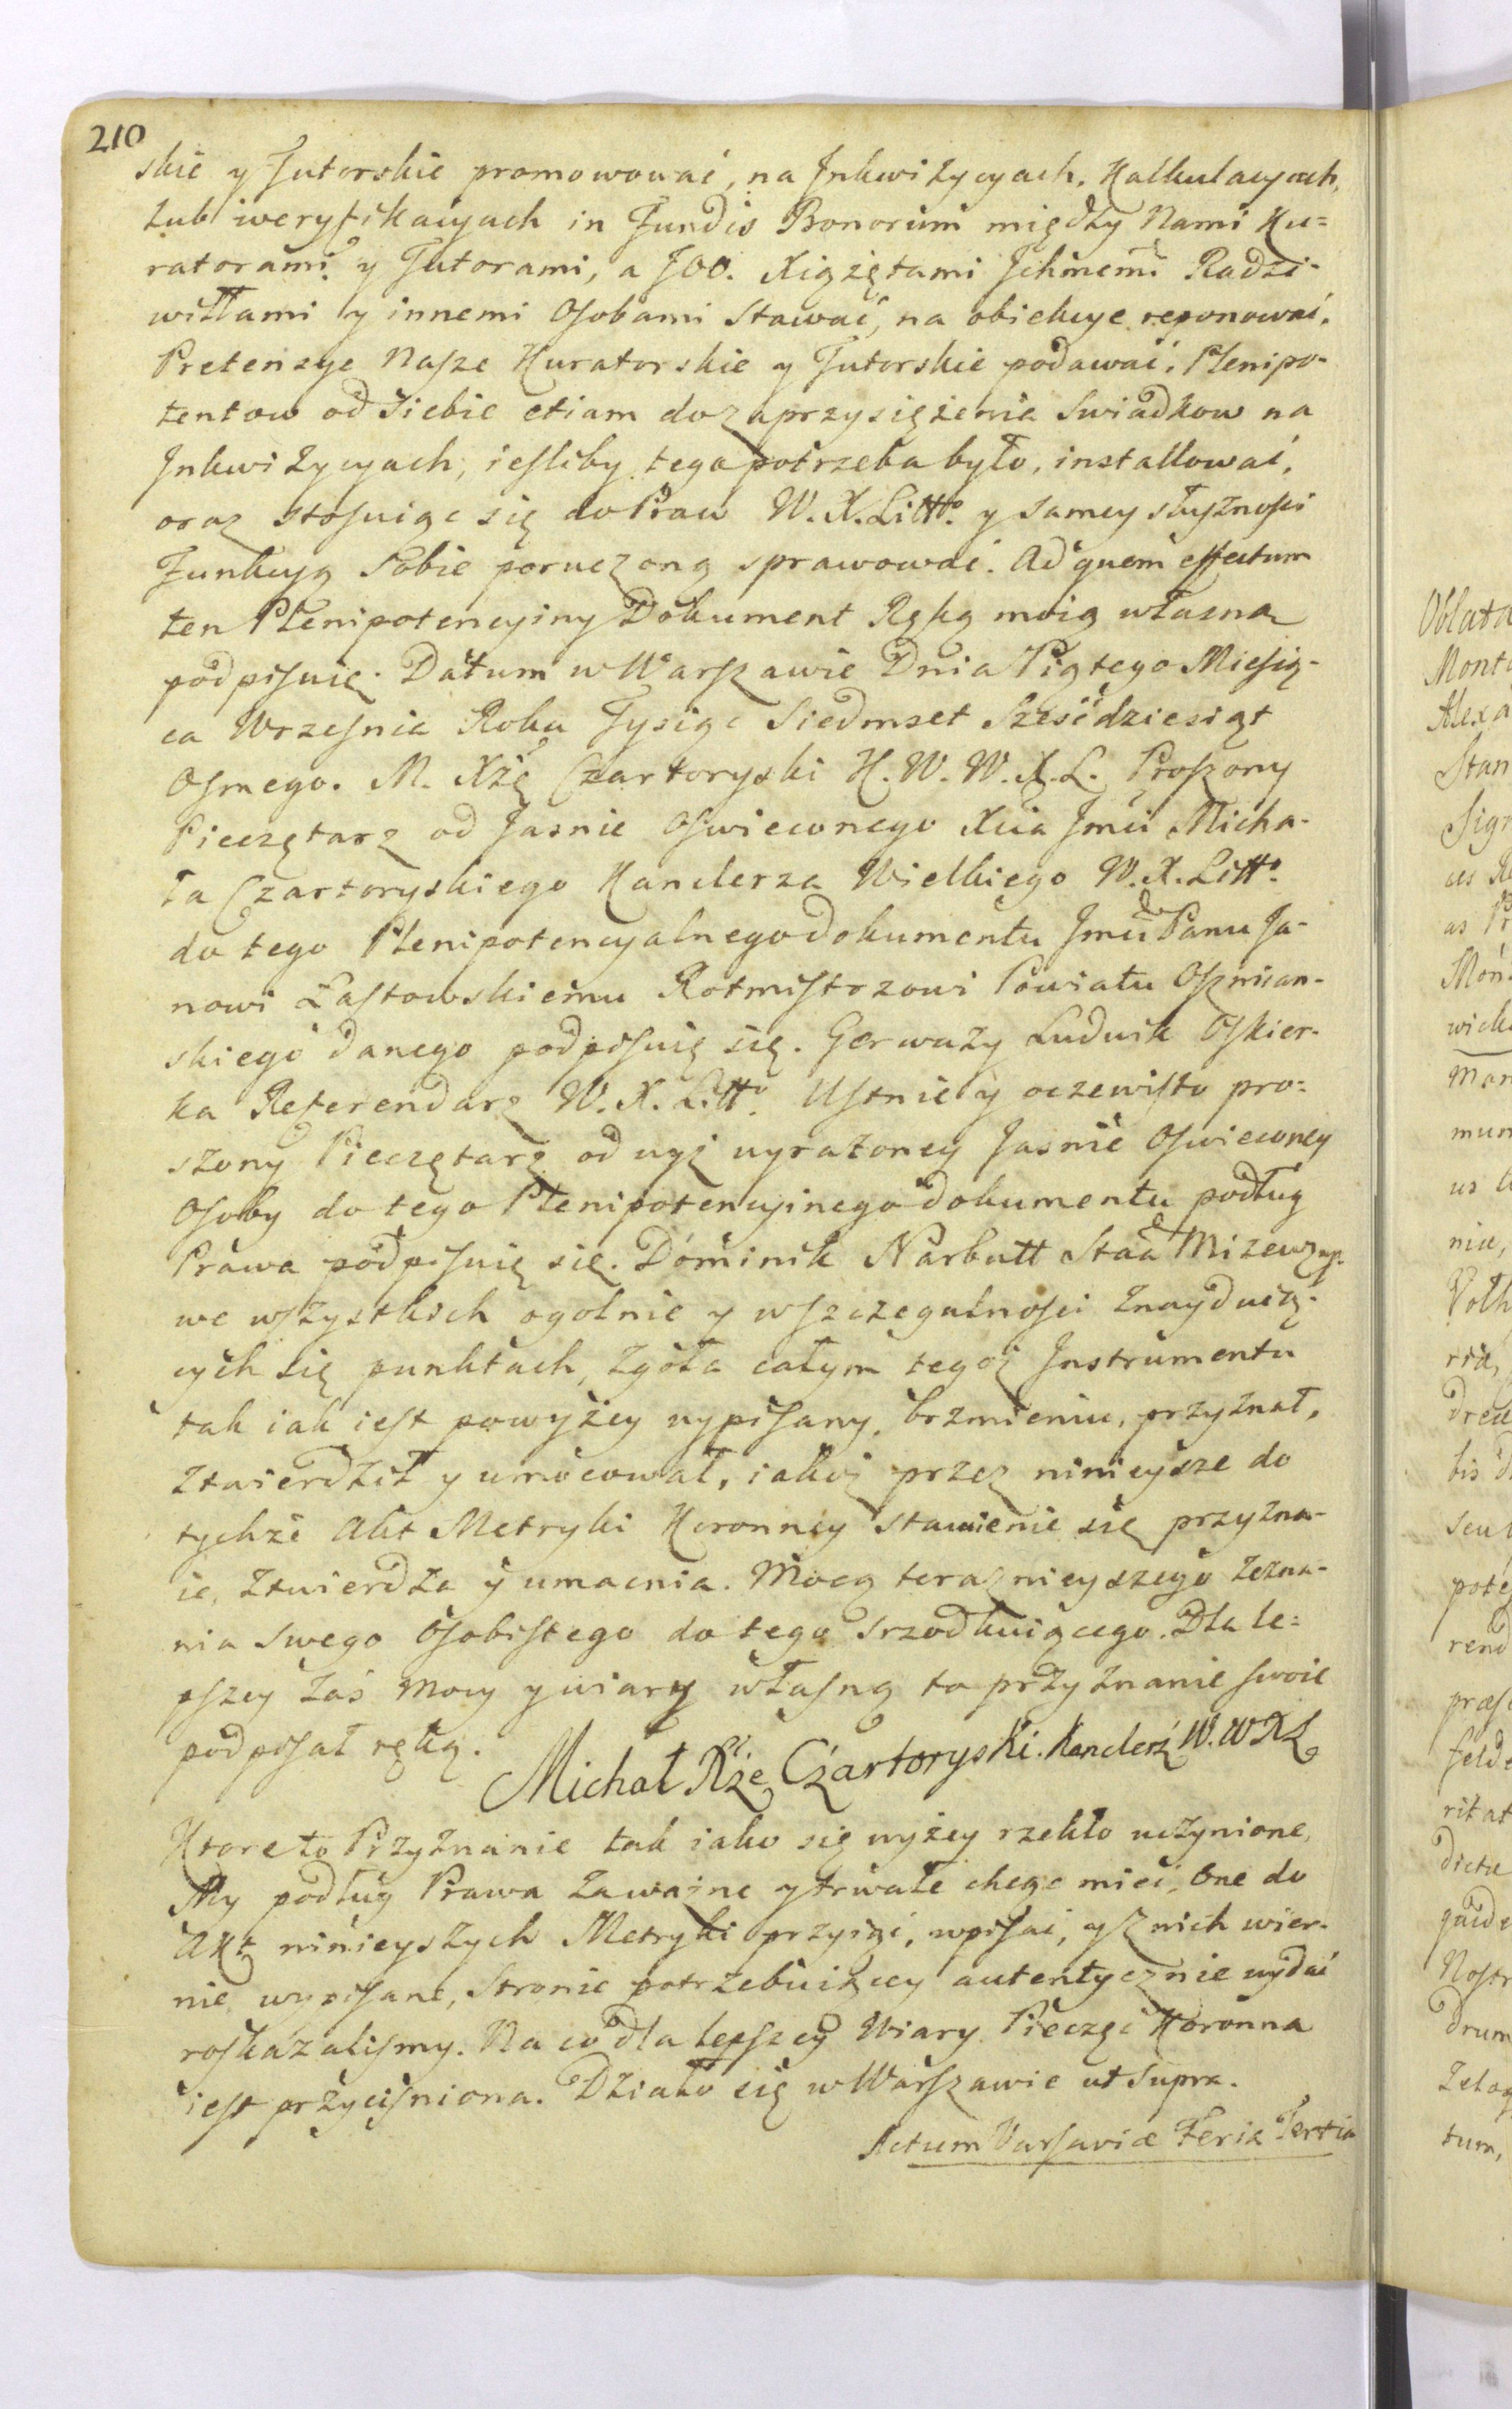 210
skie y Tutorskie promowować, na Inkwizycyach, Kalkulacyach,
lub weryfikacyach in Fundis Bonorum między Nami Ku-
ratorami y Tutorami, a JOO. Xiążętami Ichmciami Radzi-
wiłłami y innemi Osobami stawać, na obiekcye reponować,
Pretensye Nasze Kuratorskie y Tutorskie podawać, Plenipo-
tentow od siebie etiam do zaprzysiężenia Swiadkow na
Inkwizycyach, iesliby tego potrzeba było, installować,
oraz stosuiąc się do Praw W. X. Litto. y samey słuszności
Funkcyą Sobie poruczoną sprawować. Ad quem effectum
ten Plenipotencyiny Dokument Ręką moią własną
podpisuię. Datum w Warszawie Dnia Piątego Miesią-
ca Wrzesnia Roku Tysiąc Siedmset Sześćdziesiąt
Osmego. M. Xżę Czartoryski K. W. W. X. L. Proszony
Pieczętarz od Jasnie Oswieconego Xcia Jmci Micha-
ła Czartoryskiego Kanclerza Wielkiego W. X. Litto.
do tego Plenipotencyalnego dokumentu Jmci Panu Ja-
nowi Łastowskiemu Rotmistrzowi Powiatu Oszmian-
skiego danego podpisuię się. Gerwazy Ludwik Oskier-
ka Referendarz W. X. Litto. Ustnie y oczewisto pro-
szony Pieczętarz od wyż wyrażoney Jasnie Oswieconey
Osoby do tego Plenipotencyinego dokumentu podług
Prawa podpisuię się. Dominik Narbutt Staa Mizewz mp.
we wszystkich ogolnie y wszczegulności znayduią-
cych się punktach, zgoła całym tegoż Instrumentu
tak iak iest powyżey wypisany, brzmieniu, przyznał,
ztwierdził y umocował, iakoż przez ninieysze do
tychże Akt Metryki Koronney stawienie się przyzna-
ie, ztwierdza y umacnia. Mocą teraznieyszego zezna-
nia swego Osobistego do tego srzodkuiącego. Dla le-
pszey zaś mocy y wiary własną to przyznanie swoie
podpisał ręką.
Michał Xże Czartoryski. Kanclerz W. W X L
Ktore to Przyznanie tak iako się wyżey rzekło uczynione,
My podług Prawa za ważne y trwałe chcąc mieć, One do
Akt ninieyszych Metryki przyiąć, wpisać, y z nich wier-
nie wypisane, Stronie potrzebuiącey autentycznie wydać
roskazalismy. Na co dla lepszey Wiary Pieczęć Koronna
iest przyciśniona. Działo się w Warszawie ut supra.
Actum Varsaviæ Feria Tertia
Oblata
Alexa
Stan